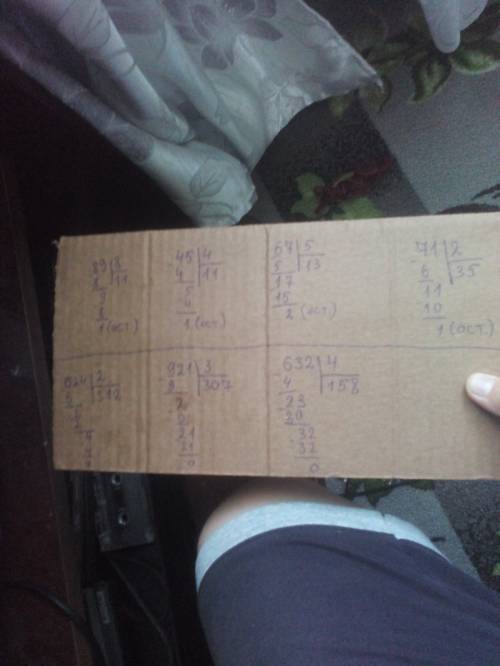 89|8
8 11
9
8
1 (ост)
45|4
4 11
5
4
1 (ост)
67|5
5 13
17
15
2 (ост)
71|2
6 35
11
10
1 (ост.)
624|2
312
921|3
9 307
2
0
21
21
0
632|4
4 158
23
20
32
32
0